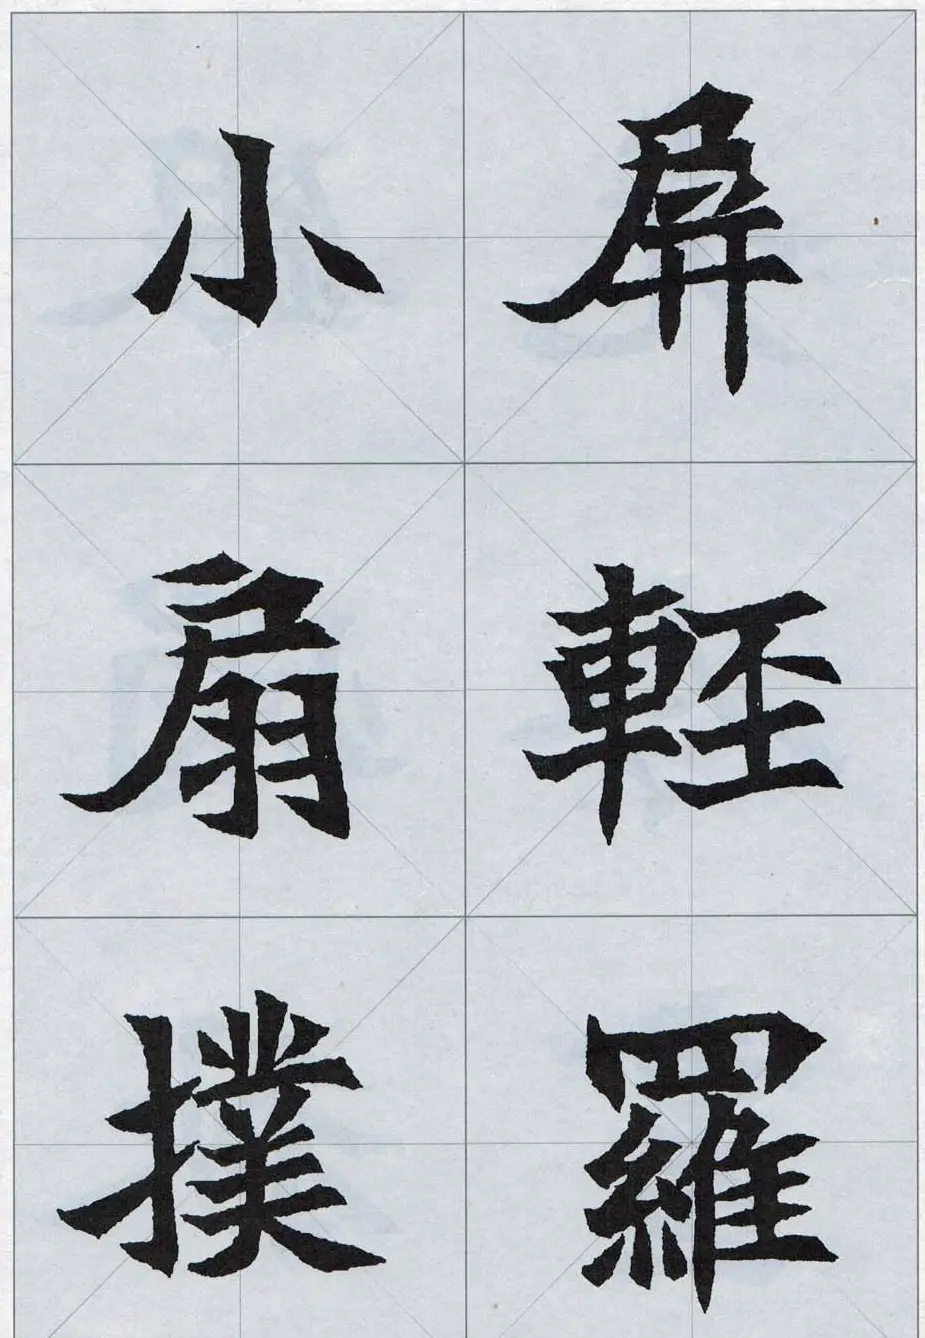 屏輕羅
小扇撲